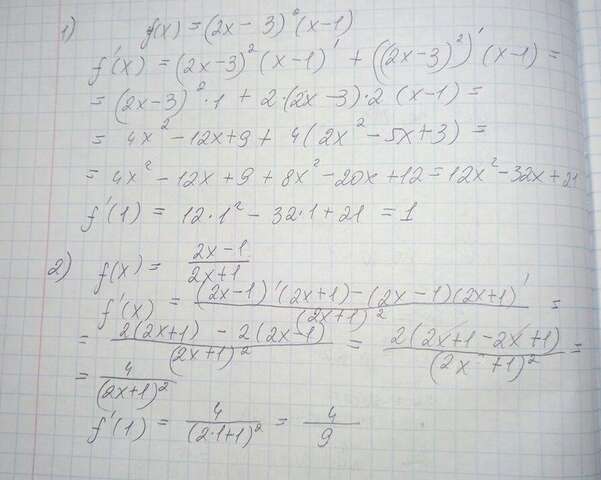 1) f(x) = (2x - 3)² (x-1)
f'(x) = (2x-3)² (x-1)' + ((2x-3)²)' (x-1) =
= (2x-3)² · 1 + 2·(2x-3)·2 (x-1) =
= 4x² - 12x + 9 + 4(2x² - 5x + 3) =
= 4x² - 12x + 9 + 8x² - 20x + 12 = 12x² - 32x + 21
f'(1) = 12·1² - 32·1 + 21 = 1
2) f(x) = (2x-1)/(2x+1)
f'(x) = ((2x-1)'(2x+1) - (2x-1)(2x+1)')/(2x+1)² =
= (2(2x+1) - 2(2x-1))/(2x+1)² = (2(2x+1-2x+1))/(2x+1)² =
= 4/(2x+1)²
f'(1) = 4/(2·1+1)² = 4/9